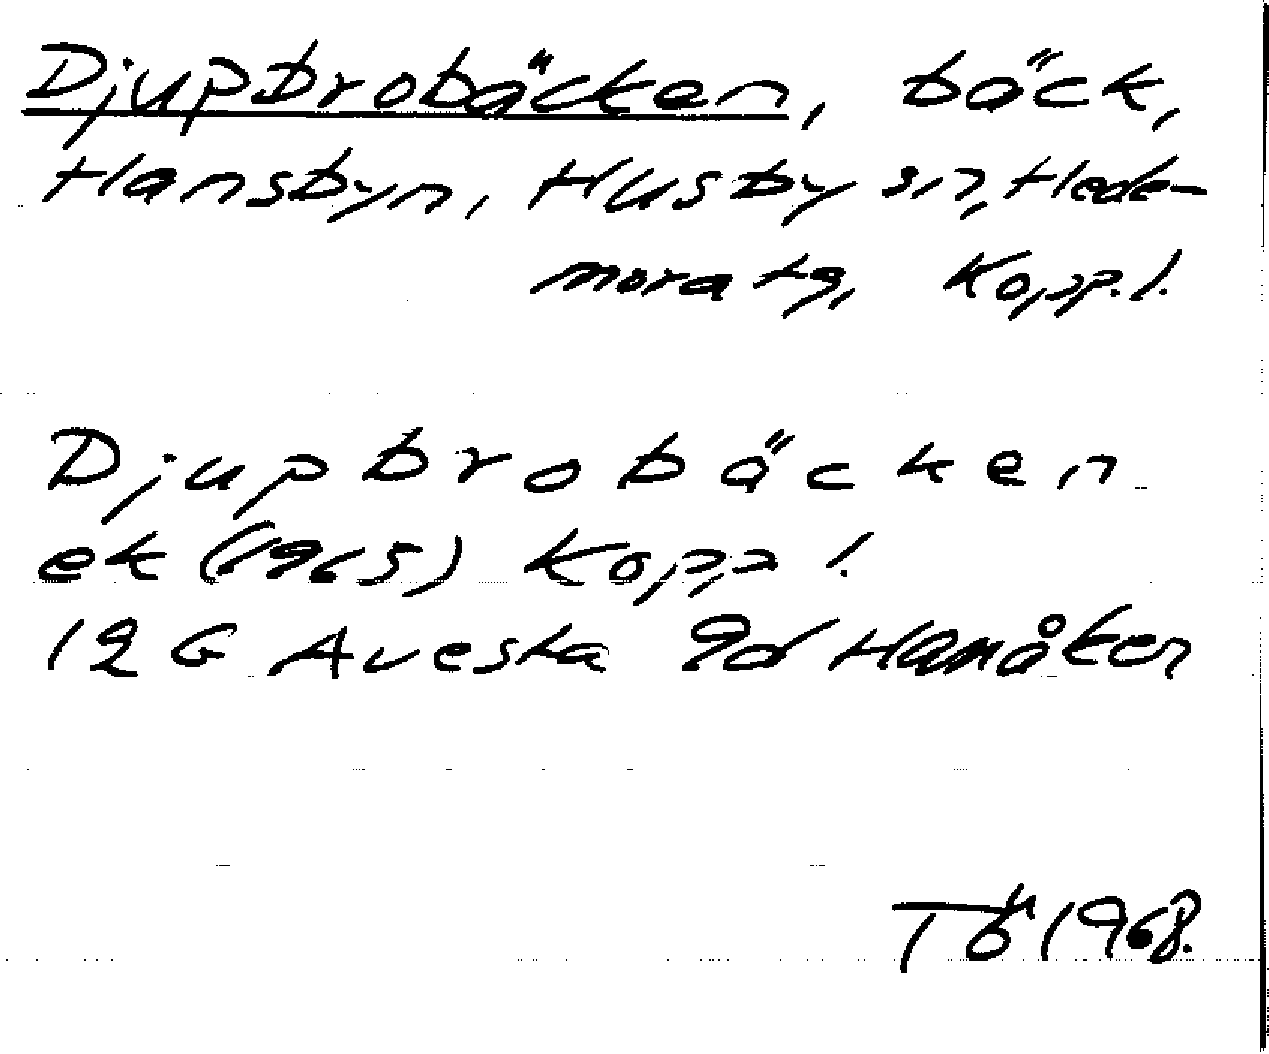 Djupbrobäcken, bäck,
Hansbyn, Husby sn, Hede-
mora tg, Kopp. l.
Djupbrobäcken
ek (1965) Kopp l.
12 G Avesta 9d Hamåker
TÖ 1968.